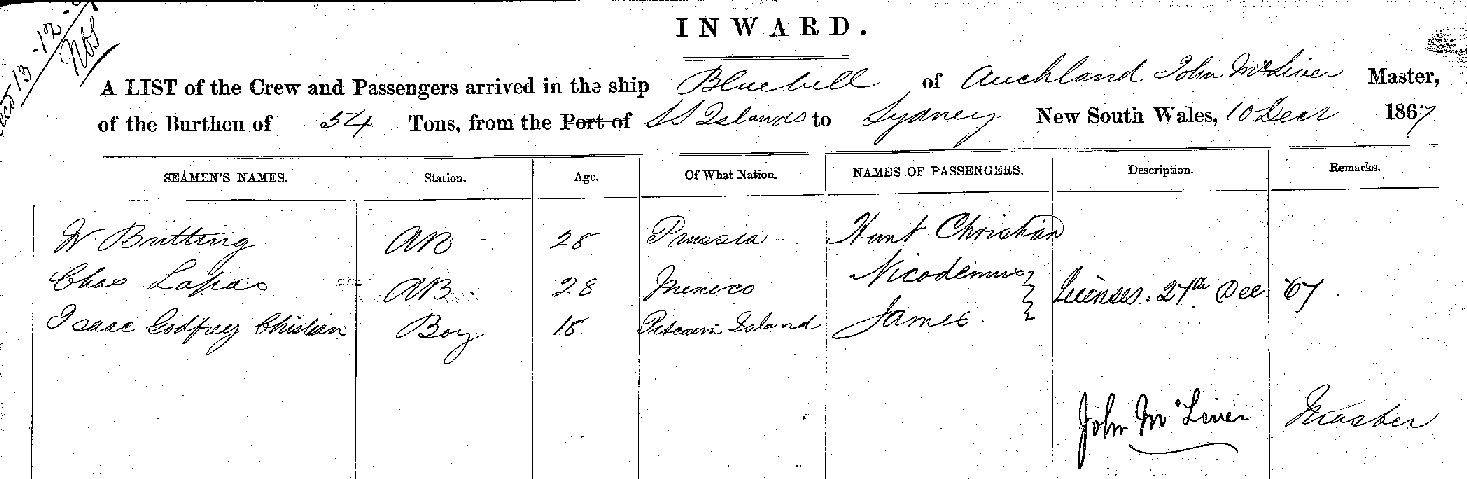 13-12-
INWARD.
A LIST of the Crew and Passengers arrived in the ship Bluebell of Auckland John McLiver Master,
of the Burthen of 54 Tons, from the Port of SS Islands to Sydney New South Wales, 10 Decr 1867
SEAMEN'S NAMES. Station. Age. Of What Nation. NAMES OF PASSENGERS. Description. Remarks.
W Britting AB 28 Prussia Hunt Christian
Chas Lapas AB 28 Mexico Nicodemus
Licenses. 27th Dec '67
Isaac Godfrey Christian Boy 18 Pitcairn Island James
John McLiver Master